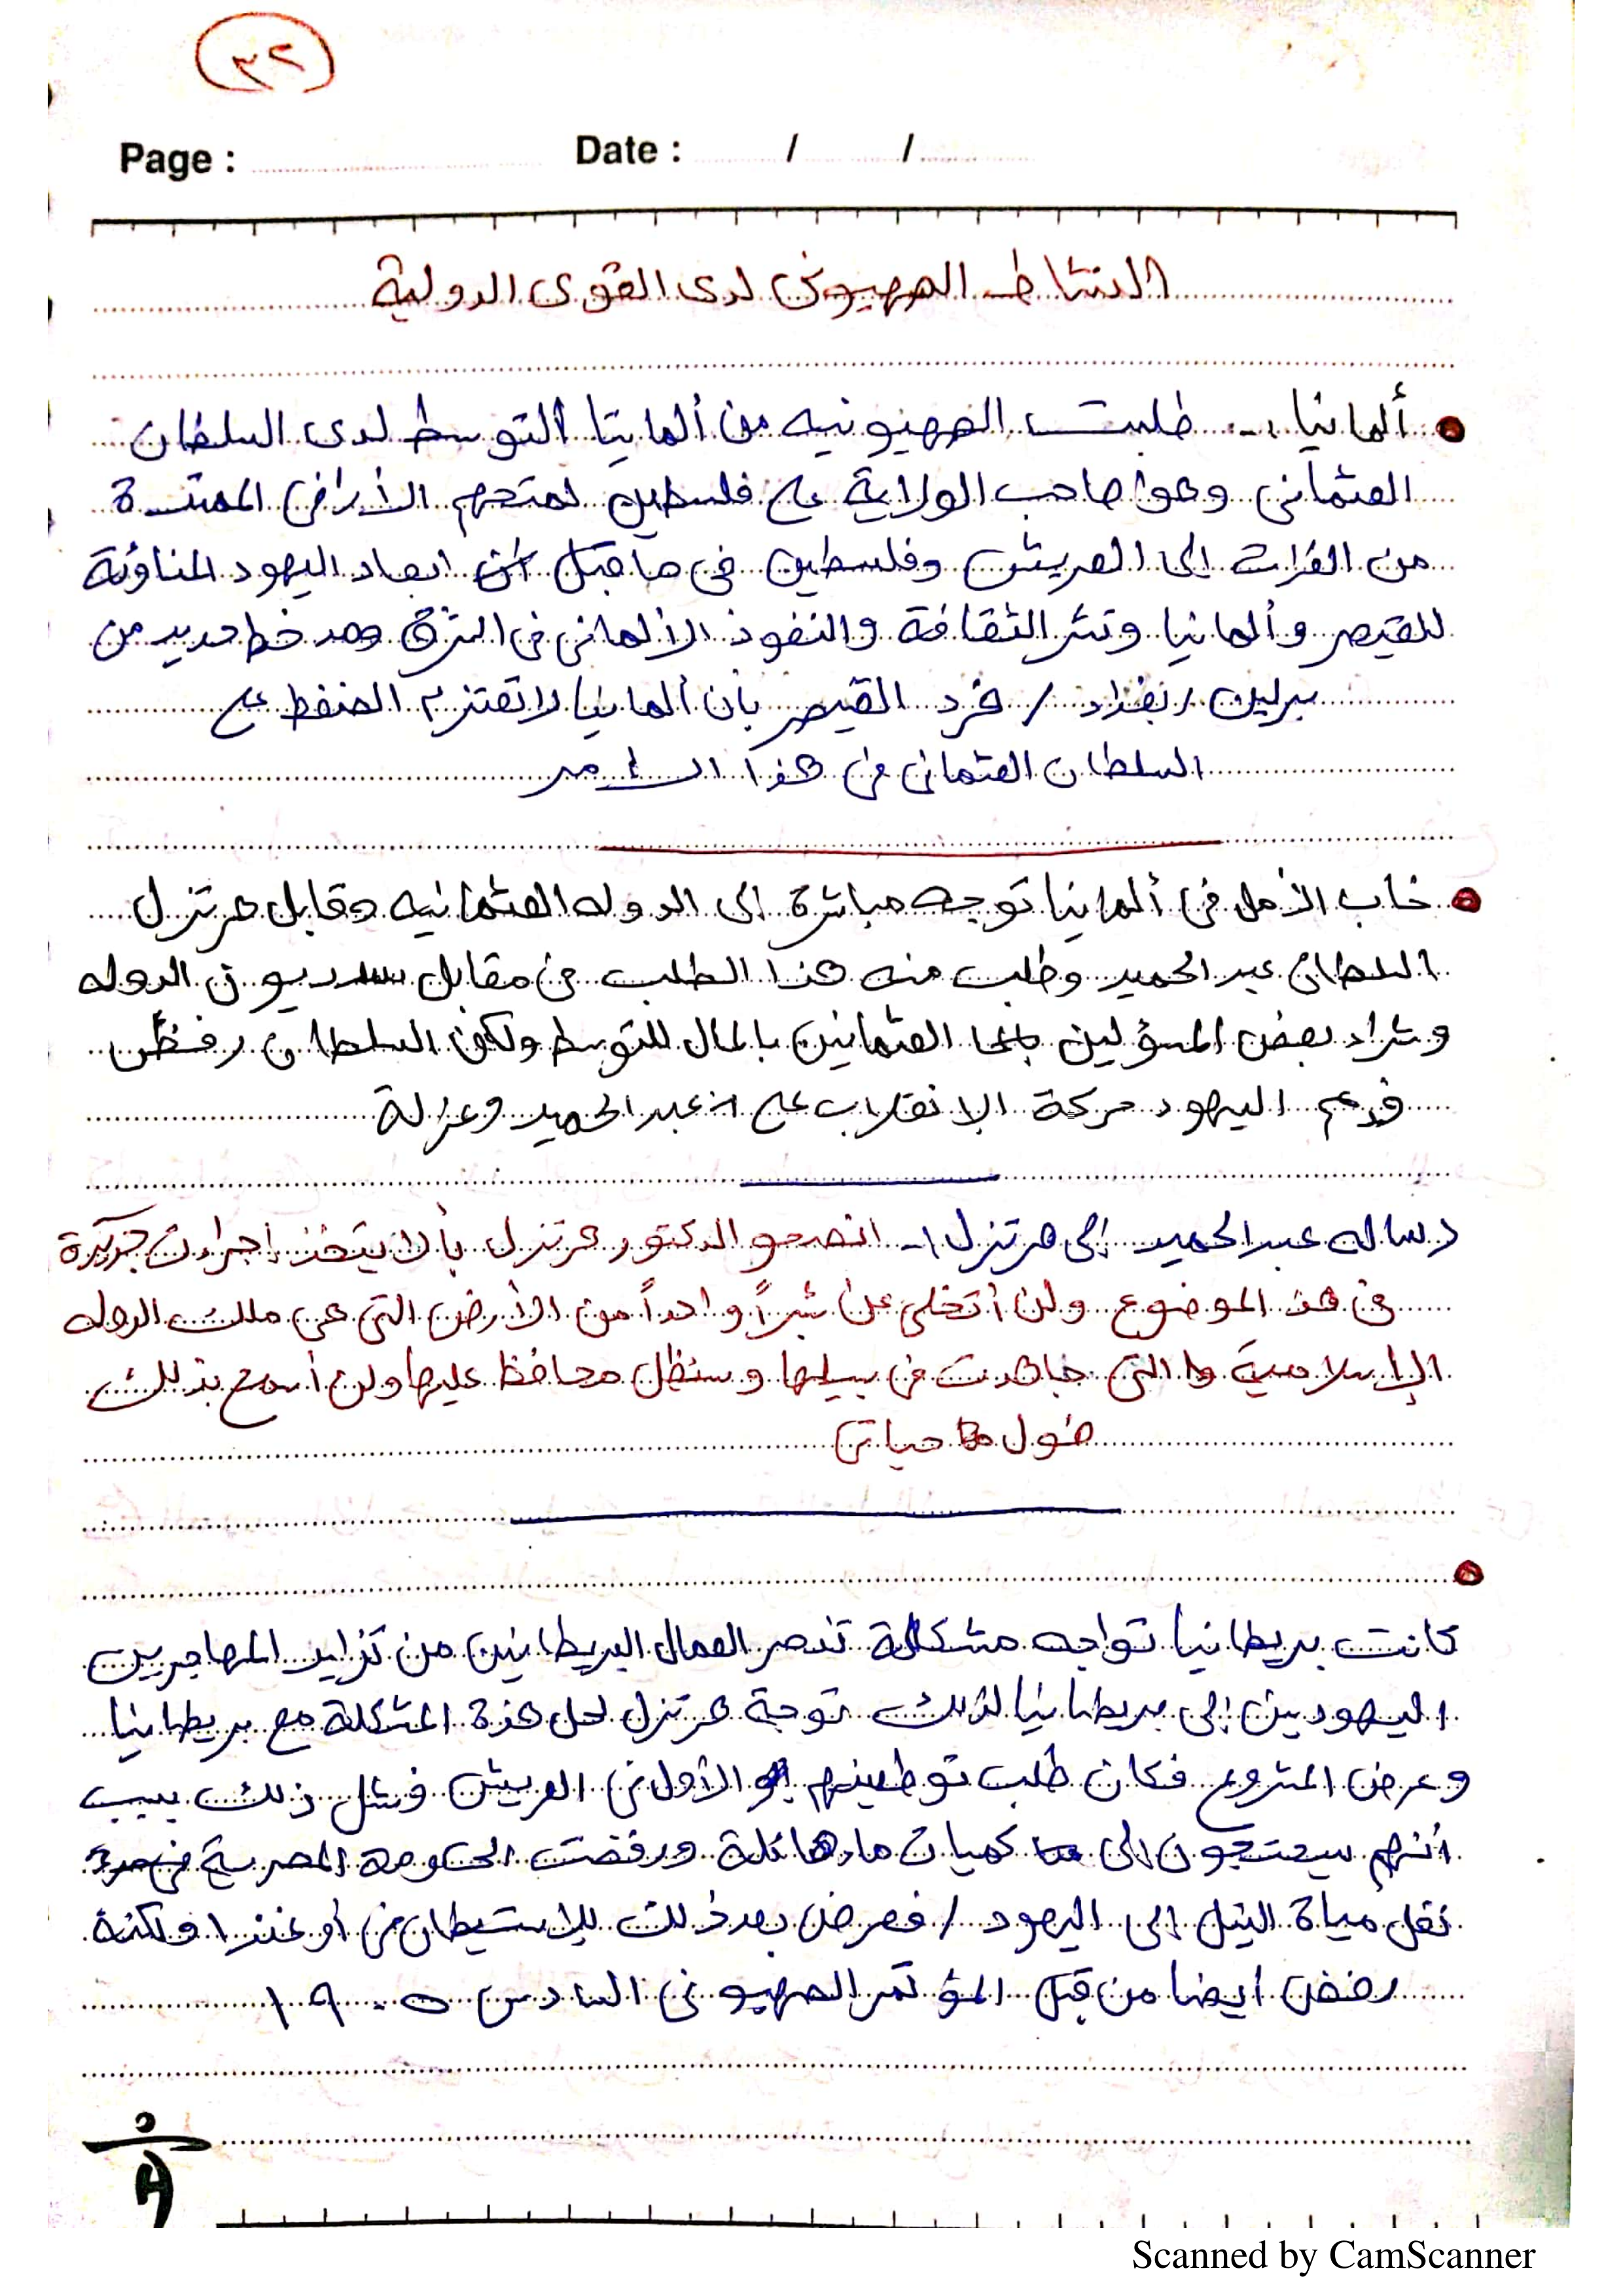 ٣٢
Page : Date : / /
النشاط الصهيوني لدى القوى الدولية
ألمانيا :- طلبت الصهيونيه من ألمانيا التوسط لدى السلطان
العثماني وهوا صاحب الولاية على فلسطين لمتحهم الأراضي الممتدة
من الفرات الى العريش وفلسطين في مقابل ابعاد اليهود المناوئة
للقيصر وألمانيا ونشر الثقافة والنفوذ الألماني في الشرق ومد خط حديد من
برلين / بغداد / فرد القيصر بأن ألمانيا لا تعتزم الضغط على
السلطان العثماني في هذا الأمر
خاب الأمل في ألمانيا توجه مباشرة الى الدوله العثمانيه وقابل هرتزل
السلطان عبد الحميد وطلب منه هذا الطلب في مقابل سد ديون الدوله
وشراء بعض المسؤلين العثمانين بالمال للتوسط ولكن السلطان رفض
فدعم اليهود حركة الإنقلاب على عبد الحميد وعزلة
رساله عبد الحميد إلى هرتزل :- انصحو الدكتور هرتزل بألا يتخذ إجراءت جديدة
في هذ الموضوع ولن أتخلى عن شبراً واحداً من الأرض التي هي ملك الدوله
الإسلامية والتي جاهدت في سبيلها وسنظل محافظ عليها ولن أسمح بذلك
طول حياتي
كانت بريطانيا تواجه مشكلة تذمر العمال البريطانين من تزايد المهاجرين
اليهودين إلى بريطانيا لذلك توجة هرتزل لحل هذة المشكلة مع بريطانيا
وعرض المشروع فكان طلب توطينهم الأول في العريش فشل ذلك بسبب
أنهم سيحتجون الى كميات ماء هائلة ورفضت الحكومة المصرية
نقل مياة النيل الى اليهود / فعرض بعد ذلك للإستيطان في أوغندا ولكنة
رفض ايضا من قبل المؤتمر الصهيوني السادس ١٩٠٥
Scanned by CamScanner